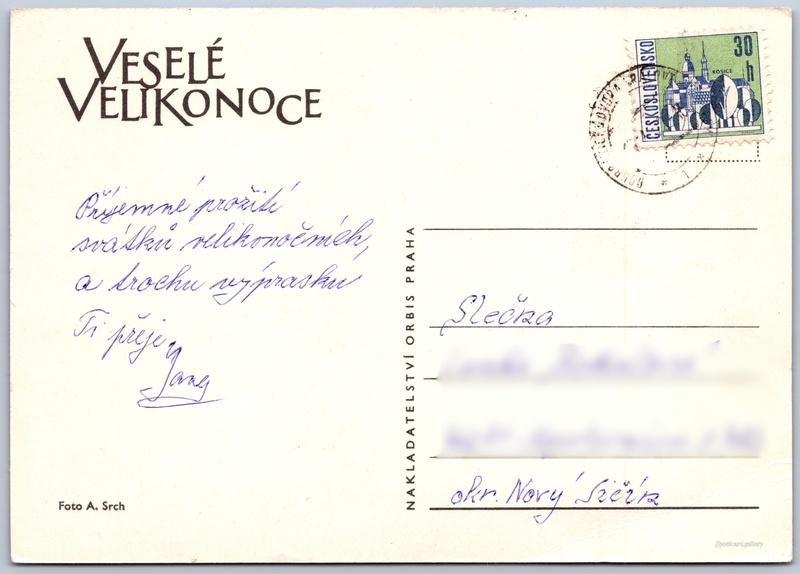 VESELÉ
VELIKONOCE
ČESKOSLOVENSKO
30
h
KOŠICE
Příjemné prožití
svátků velikonočních,
a trochu výprasku
Ti přeje
NAKLADATELSTVÍ ORBIS PRAHA
Slečna
okr. Nový Jičín
Foto A. Srch